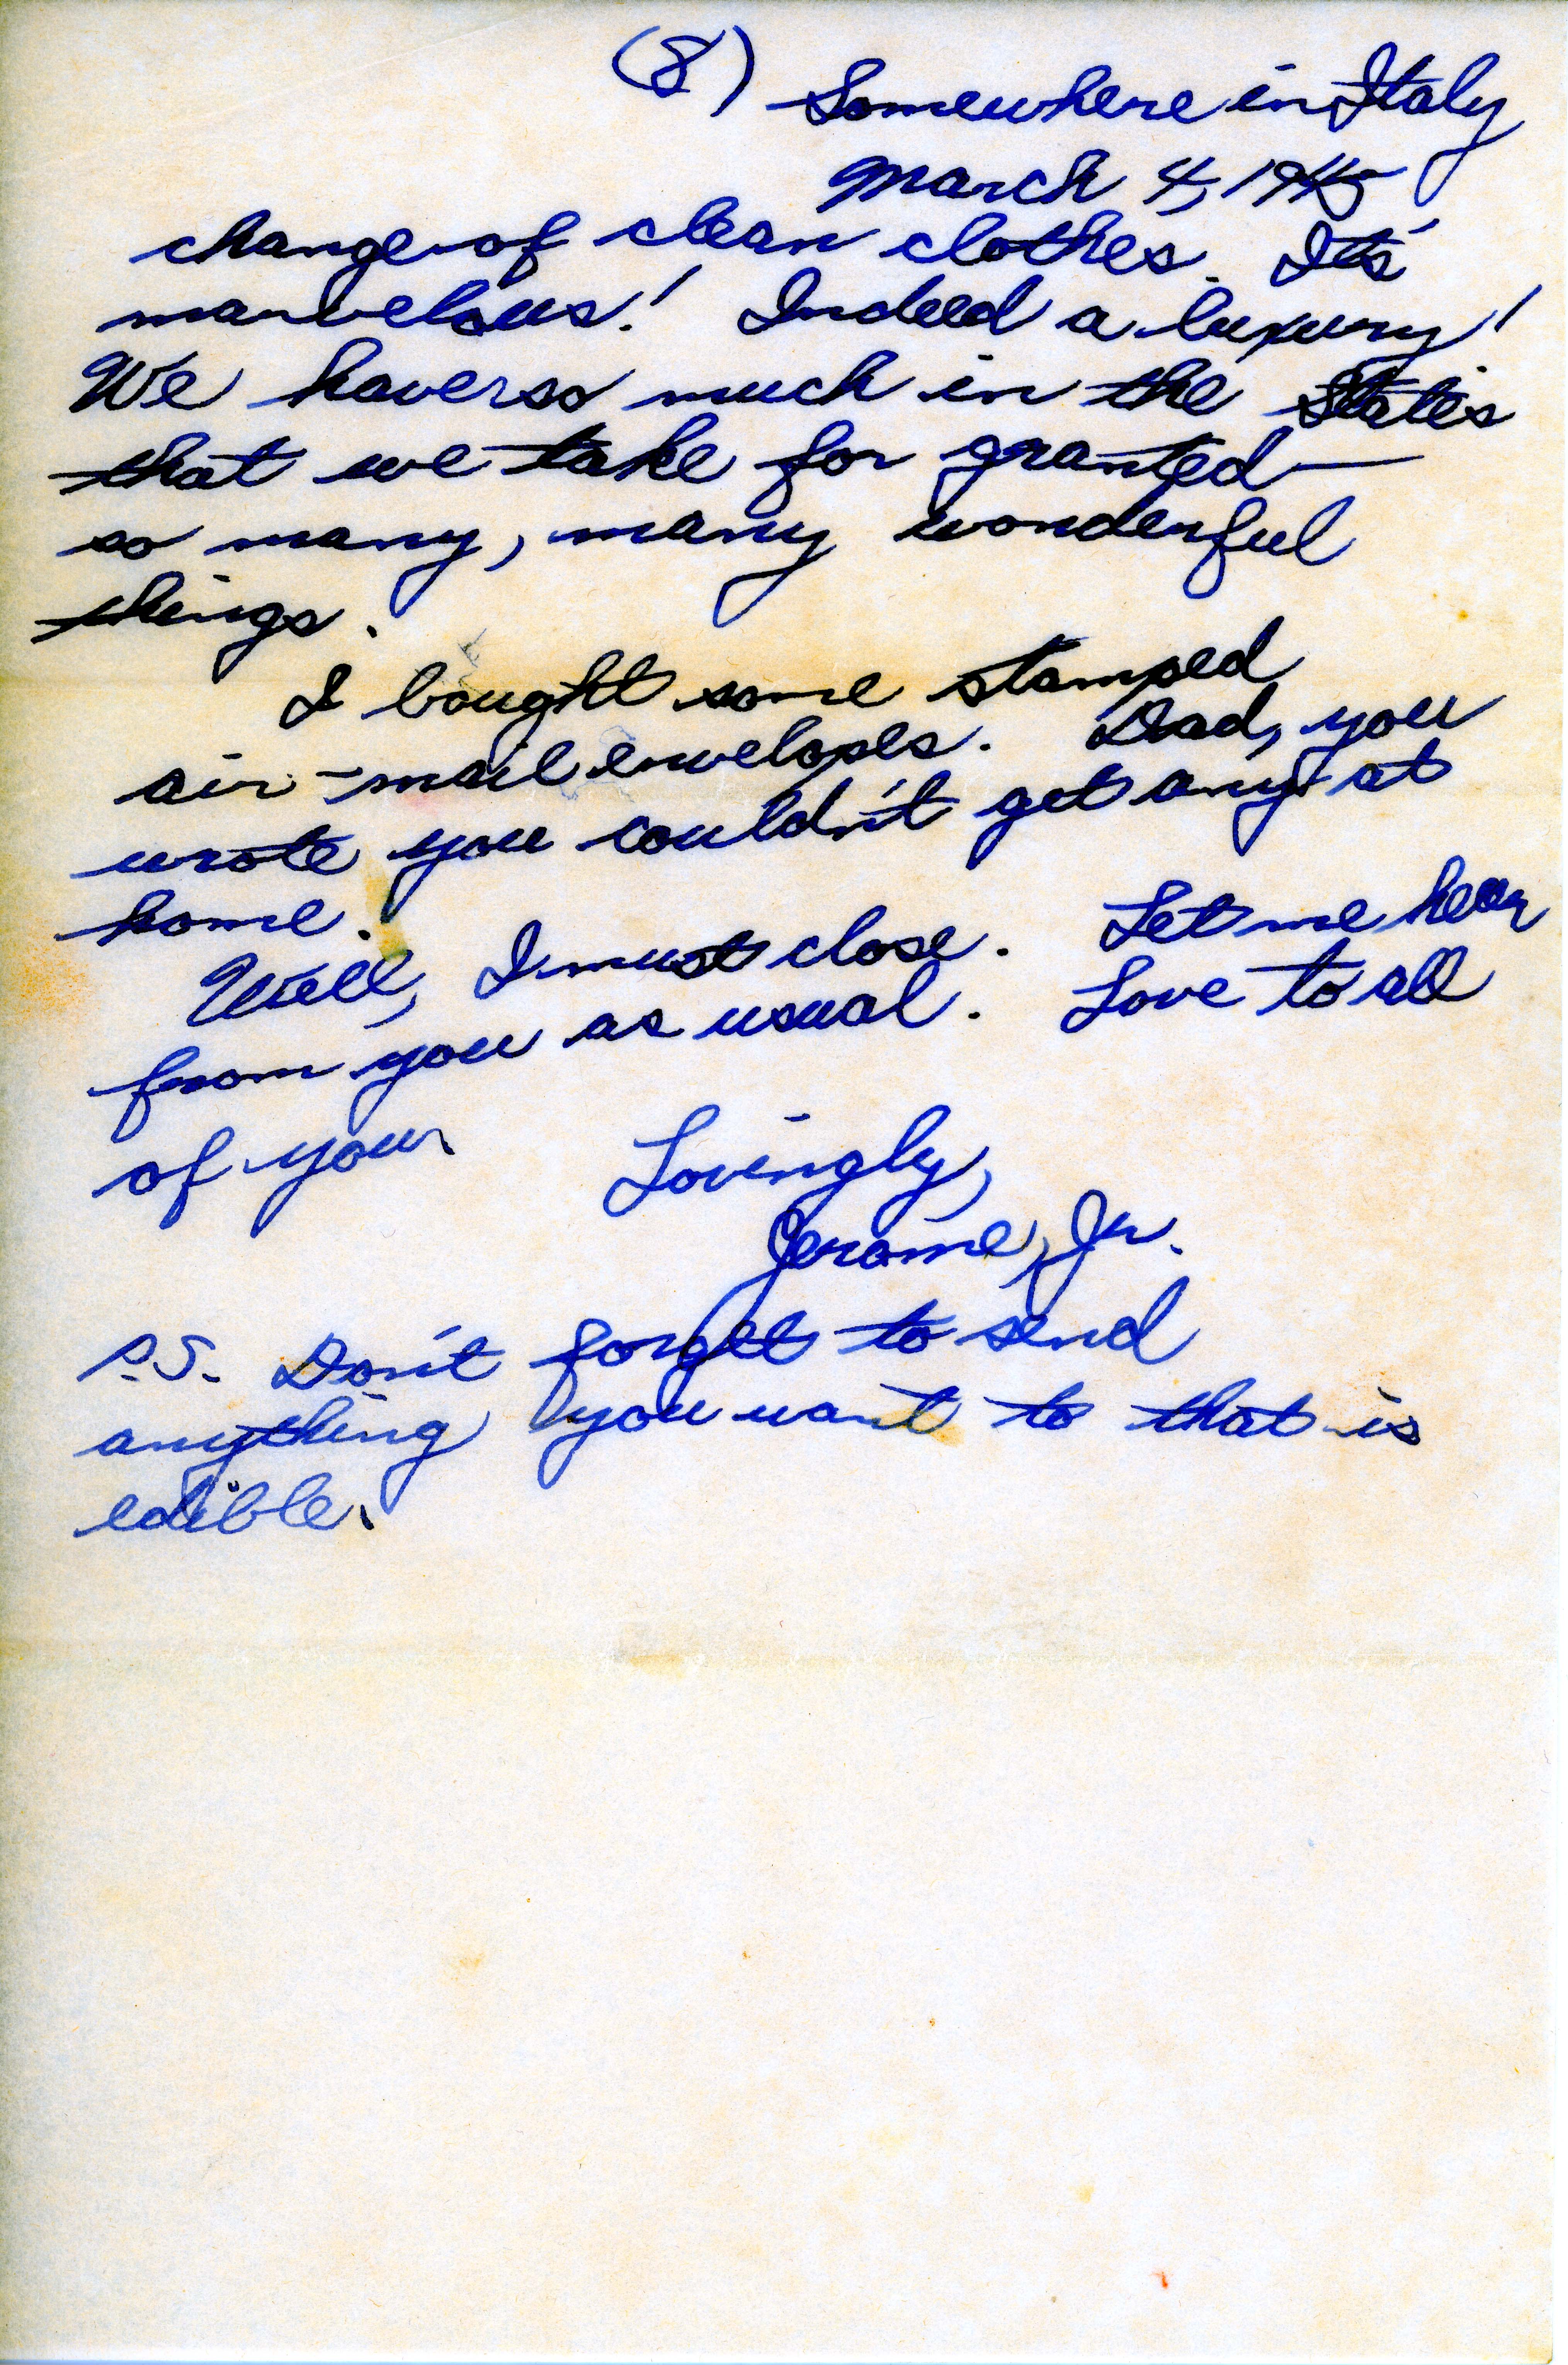 (8) Somewhere in Italy
March 4, 1945
change of clean clothes. It's
marvelous! Indeed a luxury!
We have so much in the States
that we take for granted—
so many, many wonderful
things.
I bought some stamped
air-mail envelopes. Dad, you
wrote you couldn't get any at
home.
Well, I must close. Let me hear
from you as usual. Love to all
of you.
Lovingly,
Jerome, Jr.
P.S. Don't forget to send
anything you want to that is
edible.